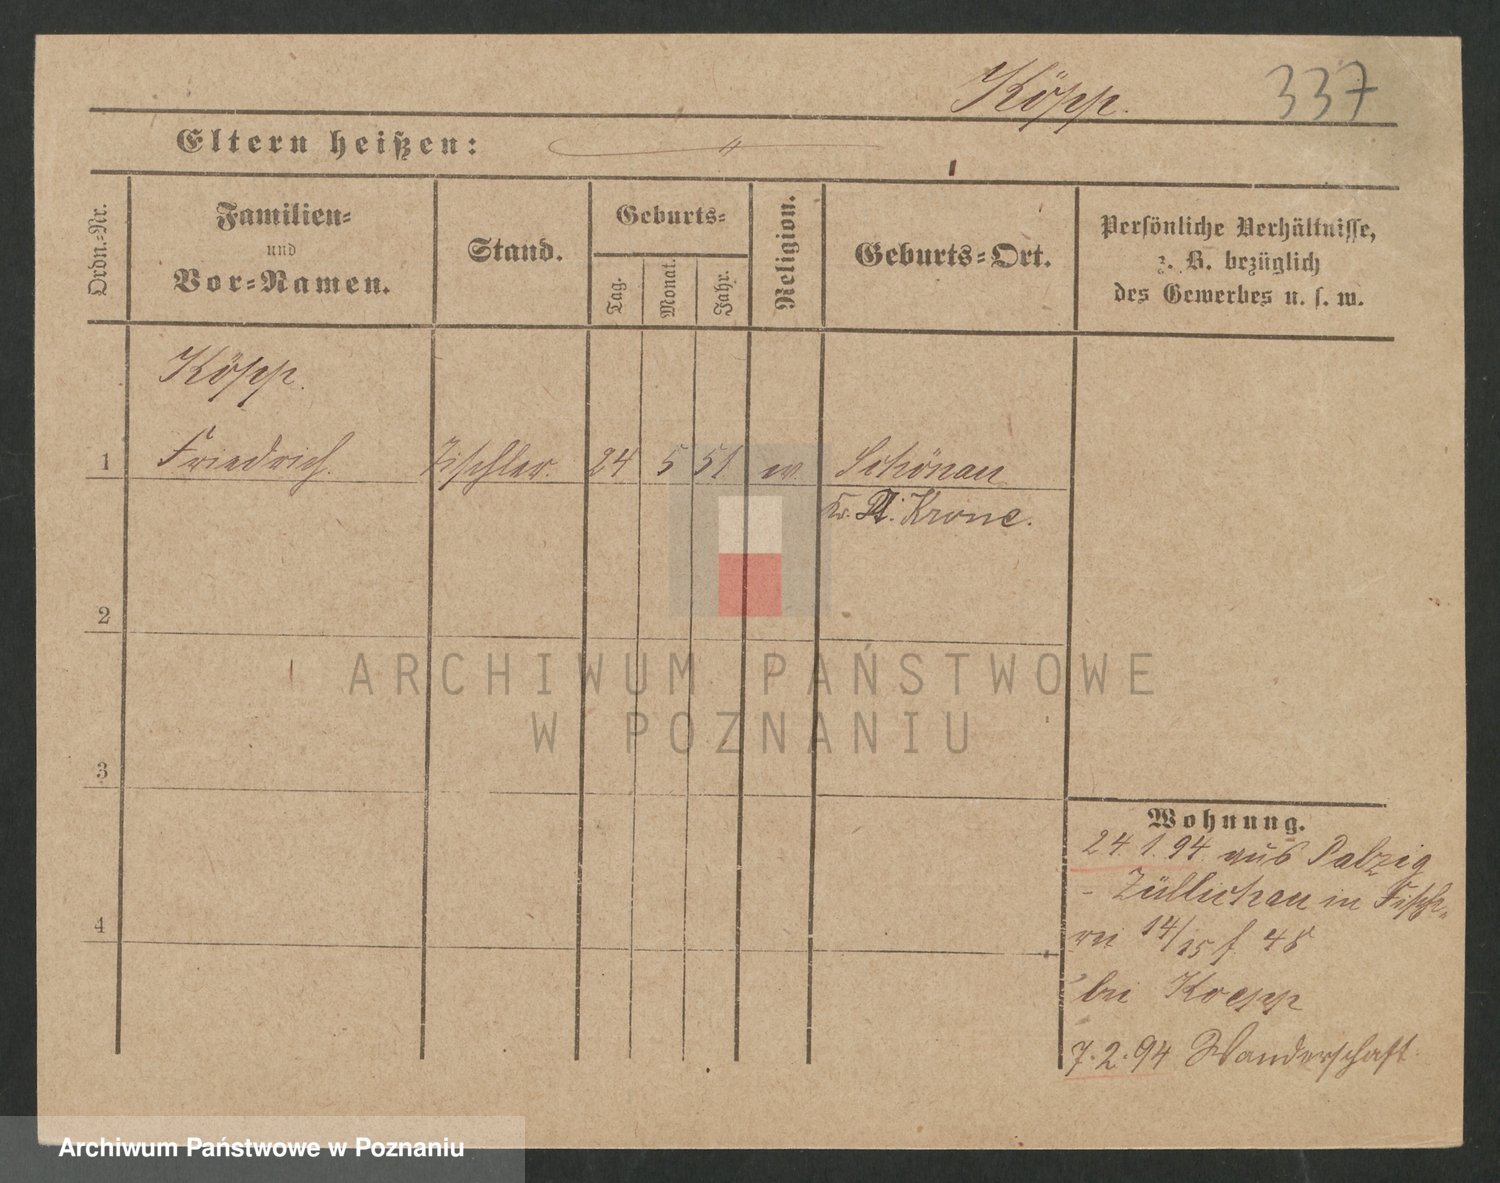 Köpp. 337
Eltern heißen:
Ordn.-Nr.
Familien-
und
Vor-Namen.
Stand.
Geburts-
Tag.
Monat.
Jahr.
Religion.
Geburts-Ort.
Persönliche Verhältnisse,
z. B. bezüglich
des Gewerbes u. s. w.
Köpp.
1 Friedrich. Tischler. 24 5 51 ev. Schönau
Kr. Dt. Krone.
2
ARCHIWUM PAŃSTWOWE
W POZNANIU
3
Wohnung.
24.1.94. aus Palzig
- Züllichau in Fische-
rei 14/15 f. 48
4
bei Koepp
7.2.94 Wanderschaft.
Archiwum Państwowe w Poznaniu